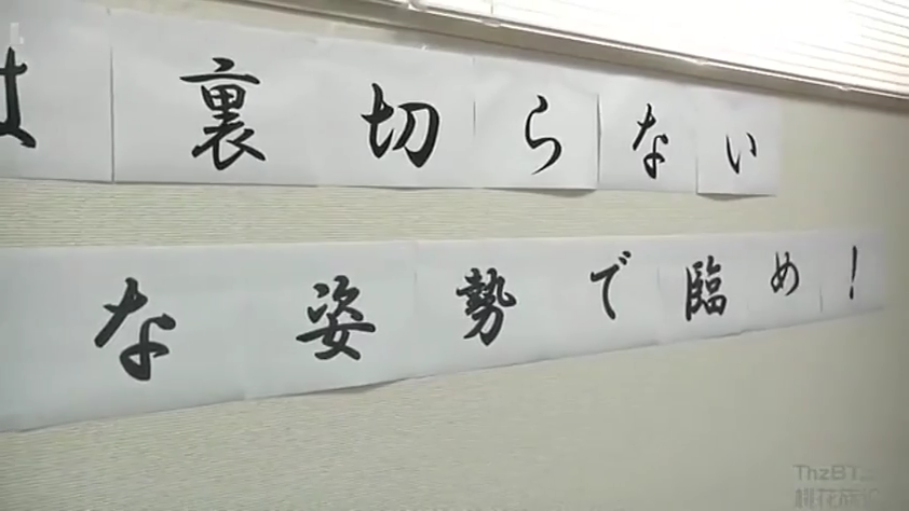 は裏切らない
な姿勢で臨め!
ThzBT
桃花族